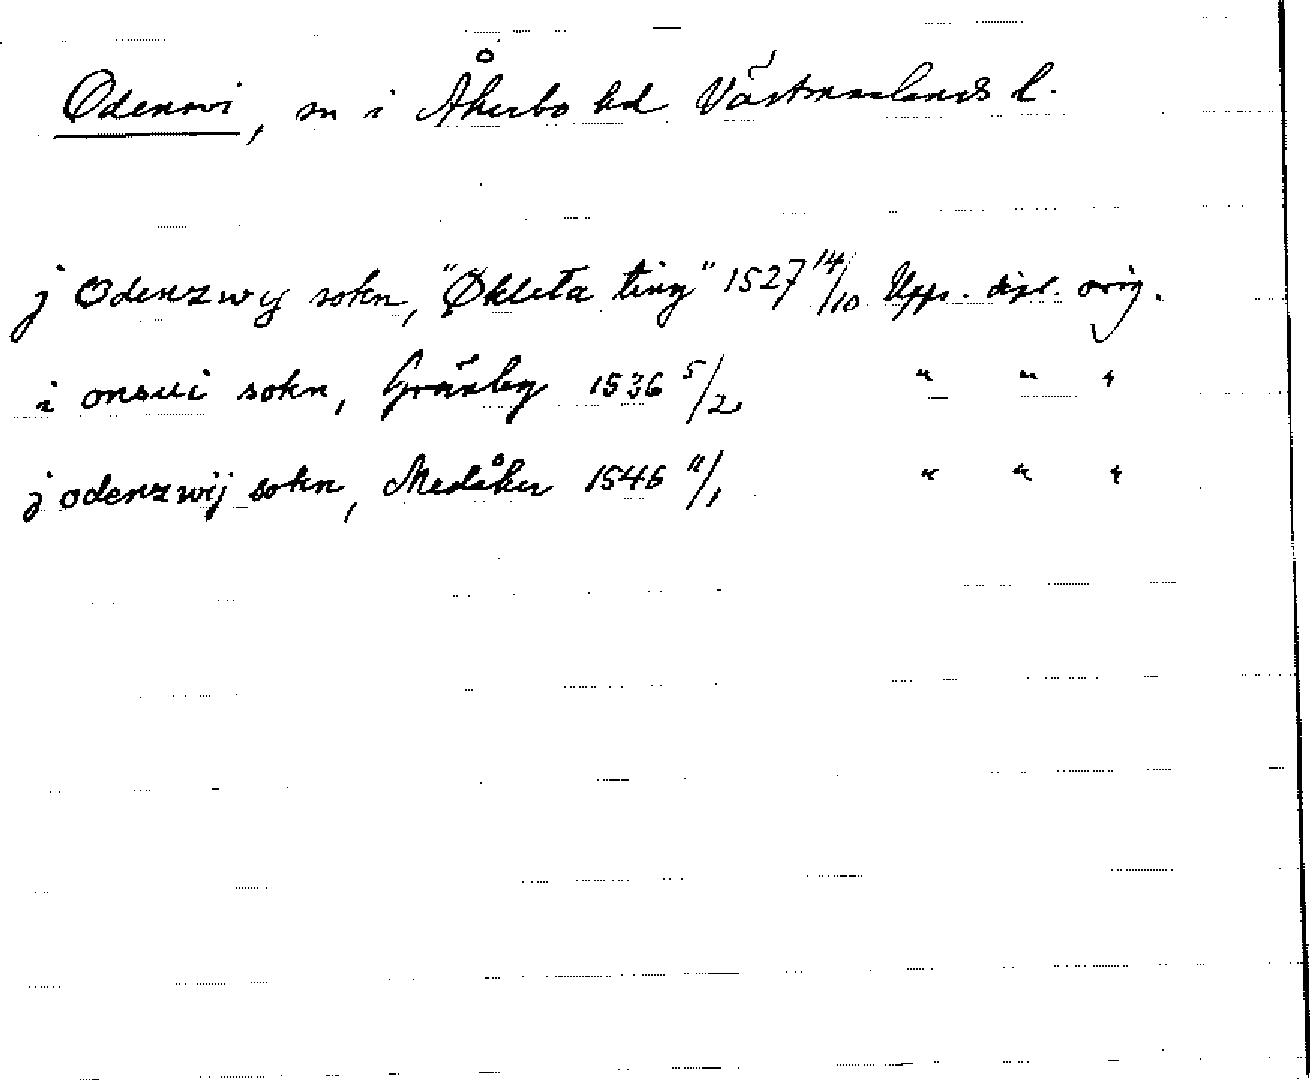 Odensvi, sn i Åkerbo hd Västmanlands l.
j Odenzwy sokn, "Økleta ting" 1527 14/10 Upps. dipl. orig.
i onsui sokn, Gränby 1536 5/2 " " "
j odenzwij sokn, Medåker 1546 11/1 " " "